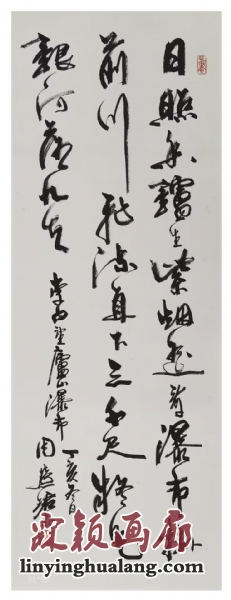 日照香炉生紫烟遥看瀑布挂
前川飞流直下三千尺疑是
银河落九天
李白望廬山瀑布
丁亥冬日
霖颖画廊
linyinghualang.com